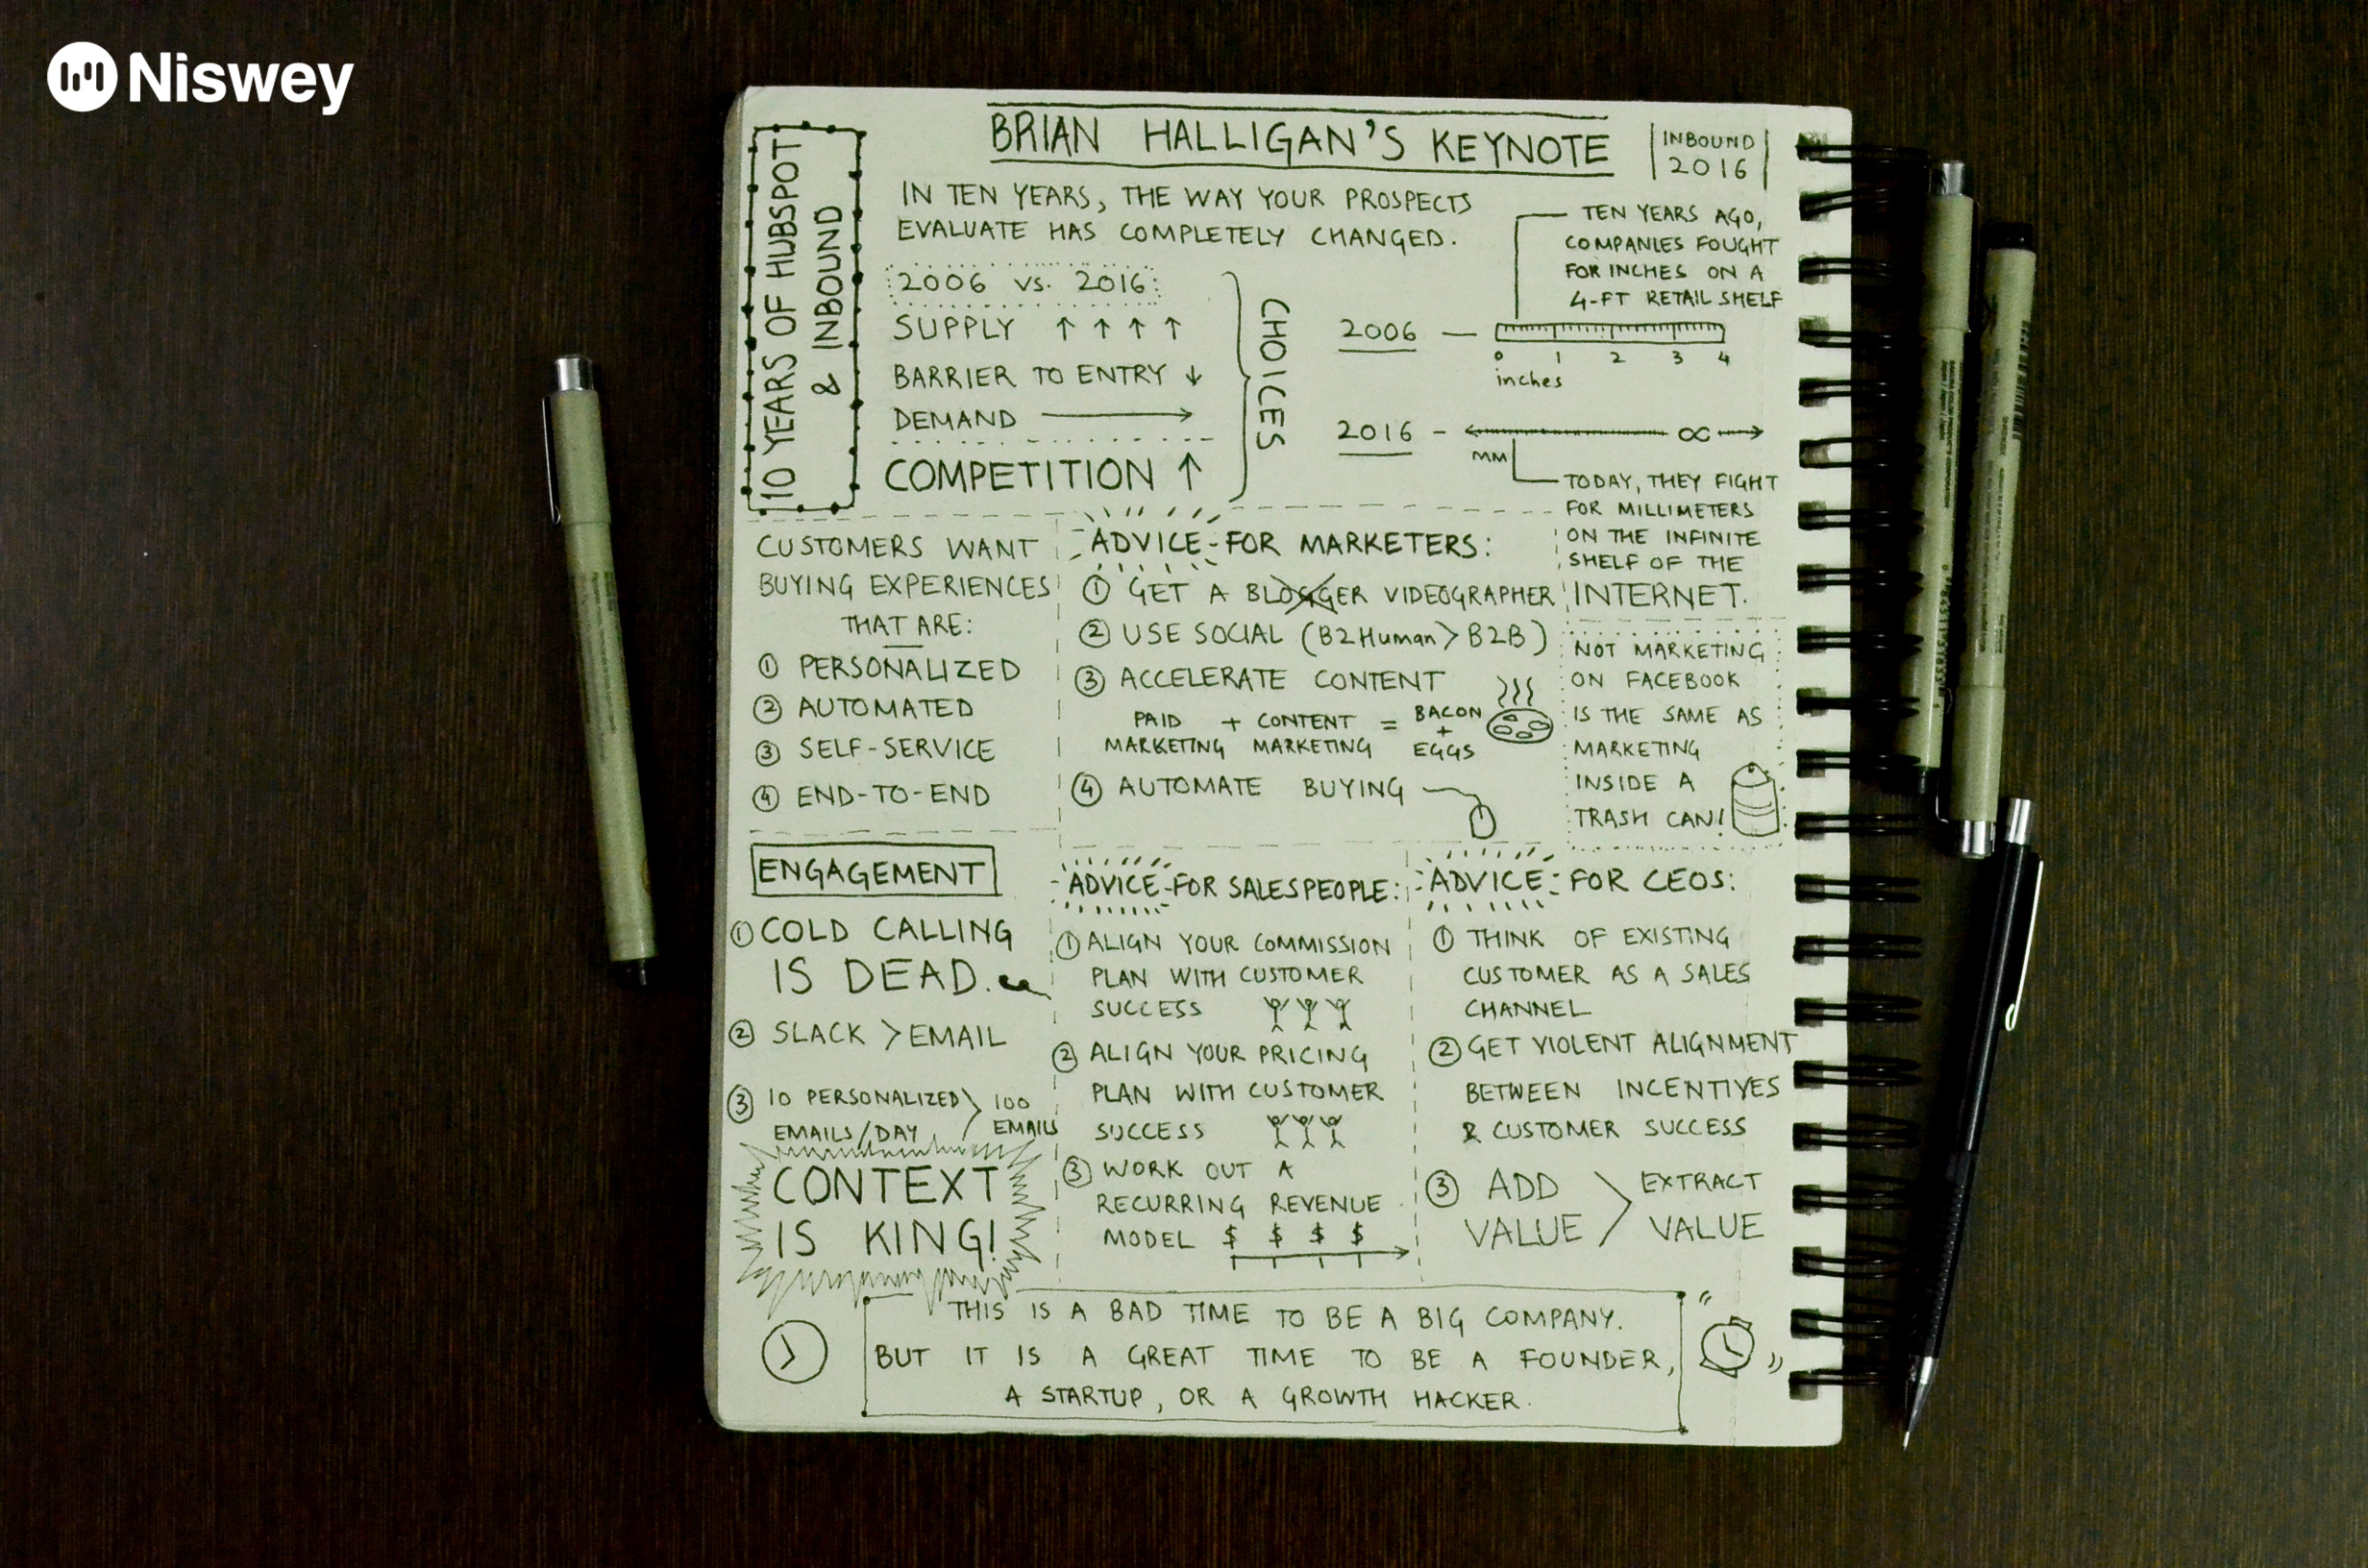 Niswey
BRIAN HALLIGAN'S KEYNOTE
INBOUND
2016
10 YEARS OF HUBSPOT
& INBOUND
IN TEN YEARS, THE WAY YOUR PROSPECTS
EVALUATE HAS COMPLETELY CHANGED.
2006 vs. 2016
SUPPLY ↑ ↑ ↑ ↑
BARRIER TO ENTRY ↓
DEMAND →
COMPETITION ↑
CHOICES
TEN YEARS AGO,
COMPANIES FOUGHT
FOR INCHES ON A
4-FT RETAIL SHELF
2006 —
0 1 2 3 4
inches
2016 - ∞
MM
TODAY, THEY FIGHT
FOR MILLIMETERS
ON THE INFINITE
SHELF OF THE
INTERNET.
CUSTOMERS WANT
BUYING EXPERIENCES
THAT ARE:
① PERSONALIZED
② AUTOMATED
③ SELF-SERVICE
④ END-TO-END
ADVICE FOR MARKETERS:
① GET A BLOGGER VIDEOGRAPHER
② USE SOCIAL (B2Human > B2B)
③ ACCELERATE CONTENT
PAID + CONTENT = BACON
MARKETING MARKETING + EGGS
④ AUTOMATE BUYING
NOT MARKETING
ON FACEBOOK
IS THE SAME AS
MARKETING
INSIDE A
TRASH CAN!
ENGAGEMENT
① COLD CALLING
IS DEAD.
② SLACK > EMAIL
③ 10 PERSONALIZED > 100
EMAILS/DAY EMAILS
CONTEXT
IS KING!
ADVICE FOR SALESPEOPLE:
① ALIGN YOUR COMMISSION
PLAN WITH CUSTOMER
SUCCESS
② ALIGN YOUR PRICING
PLAN WITH CUSTOMER
SUCCESS
③ WORK OUT A
RECURRING REVENUE
MODEL $ $ $ $
ADVICE FOR CEOS:
① THINK OF EXISTING
CUSTOMER AS A SALES
CHANNEL
② GET VIOLENT ALIGNMENT
BETWEEN INCENTIVES
& CUSTOMER SUCCESS
③ ADD > EXTRACT
VALUE VALUE
THIS IS A BAD TIME TO BE A BIG COMPANY.
BUT IT IS A GREAT TIME TO BE A FOUNDER,
A STARTUP, OR A GROWTH HACKER.